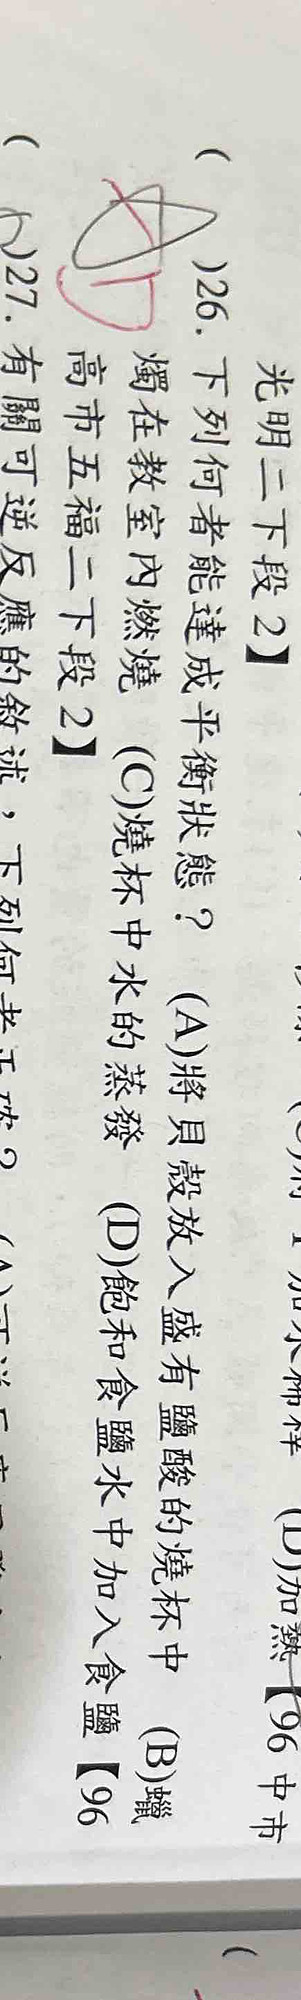 光明二下段2】
( )26. 下列何者能達成平衡狀態? (A)將貝殼放入盛有鹽酸的燒杯中 (B)蠟
燭在教室內燃燒 (C)燒杯中水的蒸發 (D)飽和食鹽水中加入食鹽【96
高市五福二下段2】
D
( )27. 有關可逆反應的敘述,下列何者正確? (A)可逆反應
(D)加熱【96中市